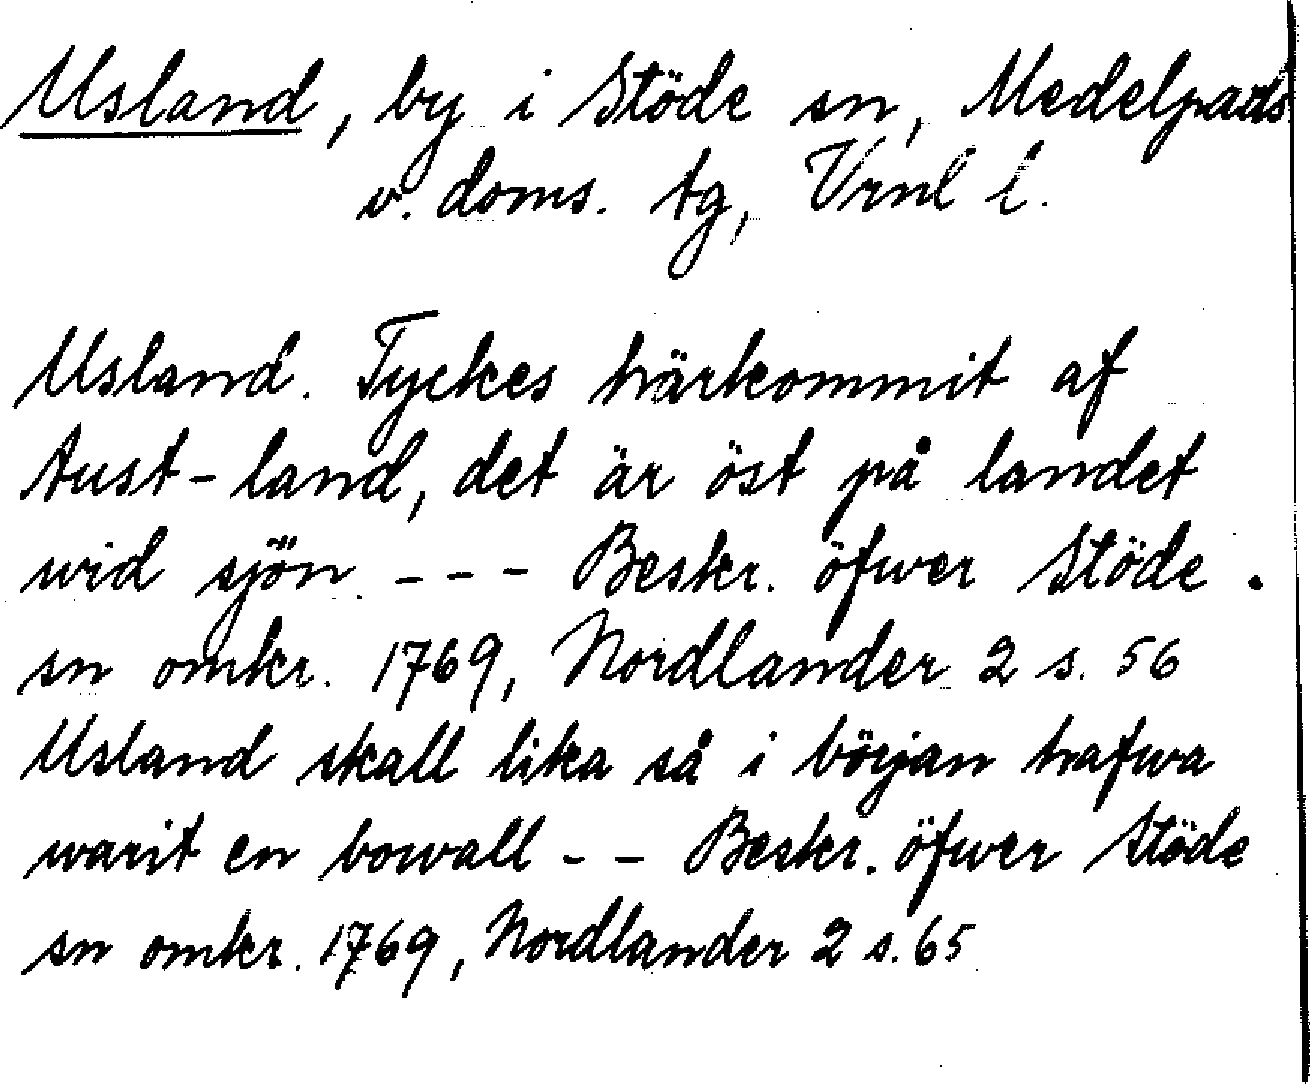 Usland, by i Stöde sn, Medelpads
v. doms. tg, Vrnl l.
Usland. Tyckes härkommit af
Aust-land, det är öst på landet
wid sjön. --- Beskr. öfwer Stöde.
sn omkr. 1769, Nordlander 2 s. 56
Usland skall lika så i början hafwa
warit en bowall -- Beskr. öfwer Stöde
sn omkr. 1769, Nordlander 2 s. 65